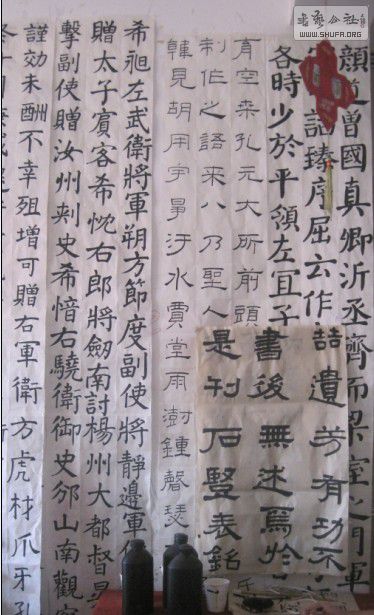 書藝公社
WWW.SHUFA.ORG
顏道曾國真卿沂丞齊而梁室之門軍
記臻序屈玄作
各時少於平領左宜子
有空桒孔元大所前頭
制作之語來八乃聖人
韓見胡用宇昇汙水賈堂雨澍鍾聲瑟
希昶左武衛將軍朔方節度副使將靜邊軍
贈太子賓客希忱右郎將劒南討楊州大都督
擊副使贈汝州刺史希愔右驍衛御史邠山南觀
謹効未酬不幸殂增可贈右軍衛方虎材爪牙孔
喆遺芳有功不
書後無述焉於
是刊石豎表銘